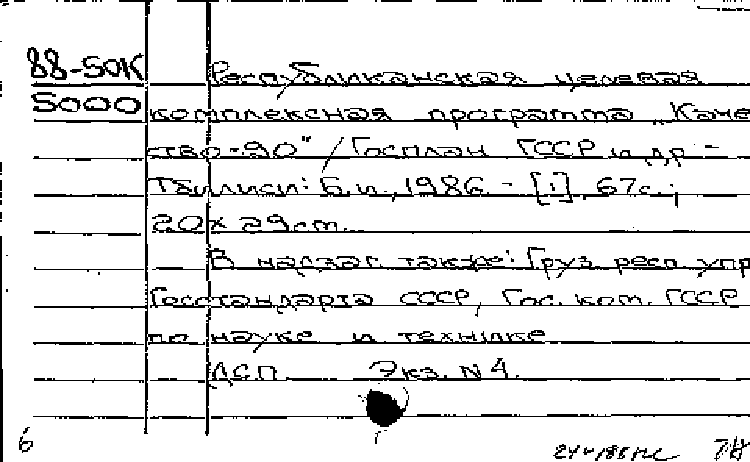 88-50К Республиканская целевая
5000 комплексная программа „Каче
ство-90" / Госплан ГССР и др. -
Тбилиси: Б.и., 1986. - [1], 67с.;
20х29см.
В надзаг. также: Груз. респ. упр
Госстандарта СССР, Гос. ком. ГССР
по науке и технике
ДСП Экз. N4.
6 78